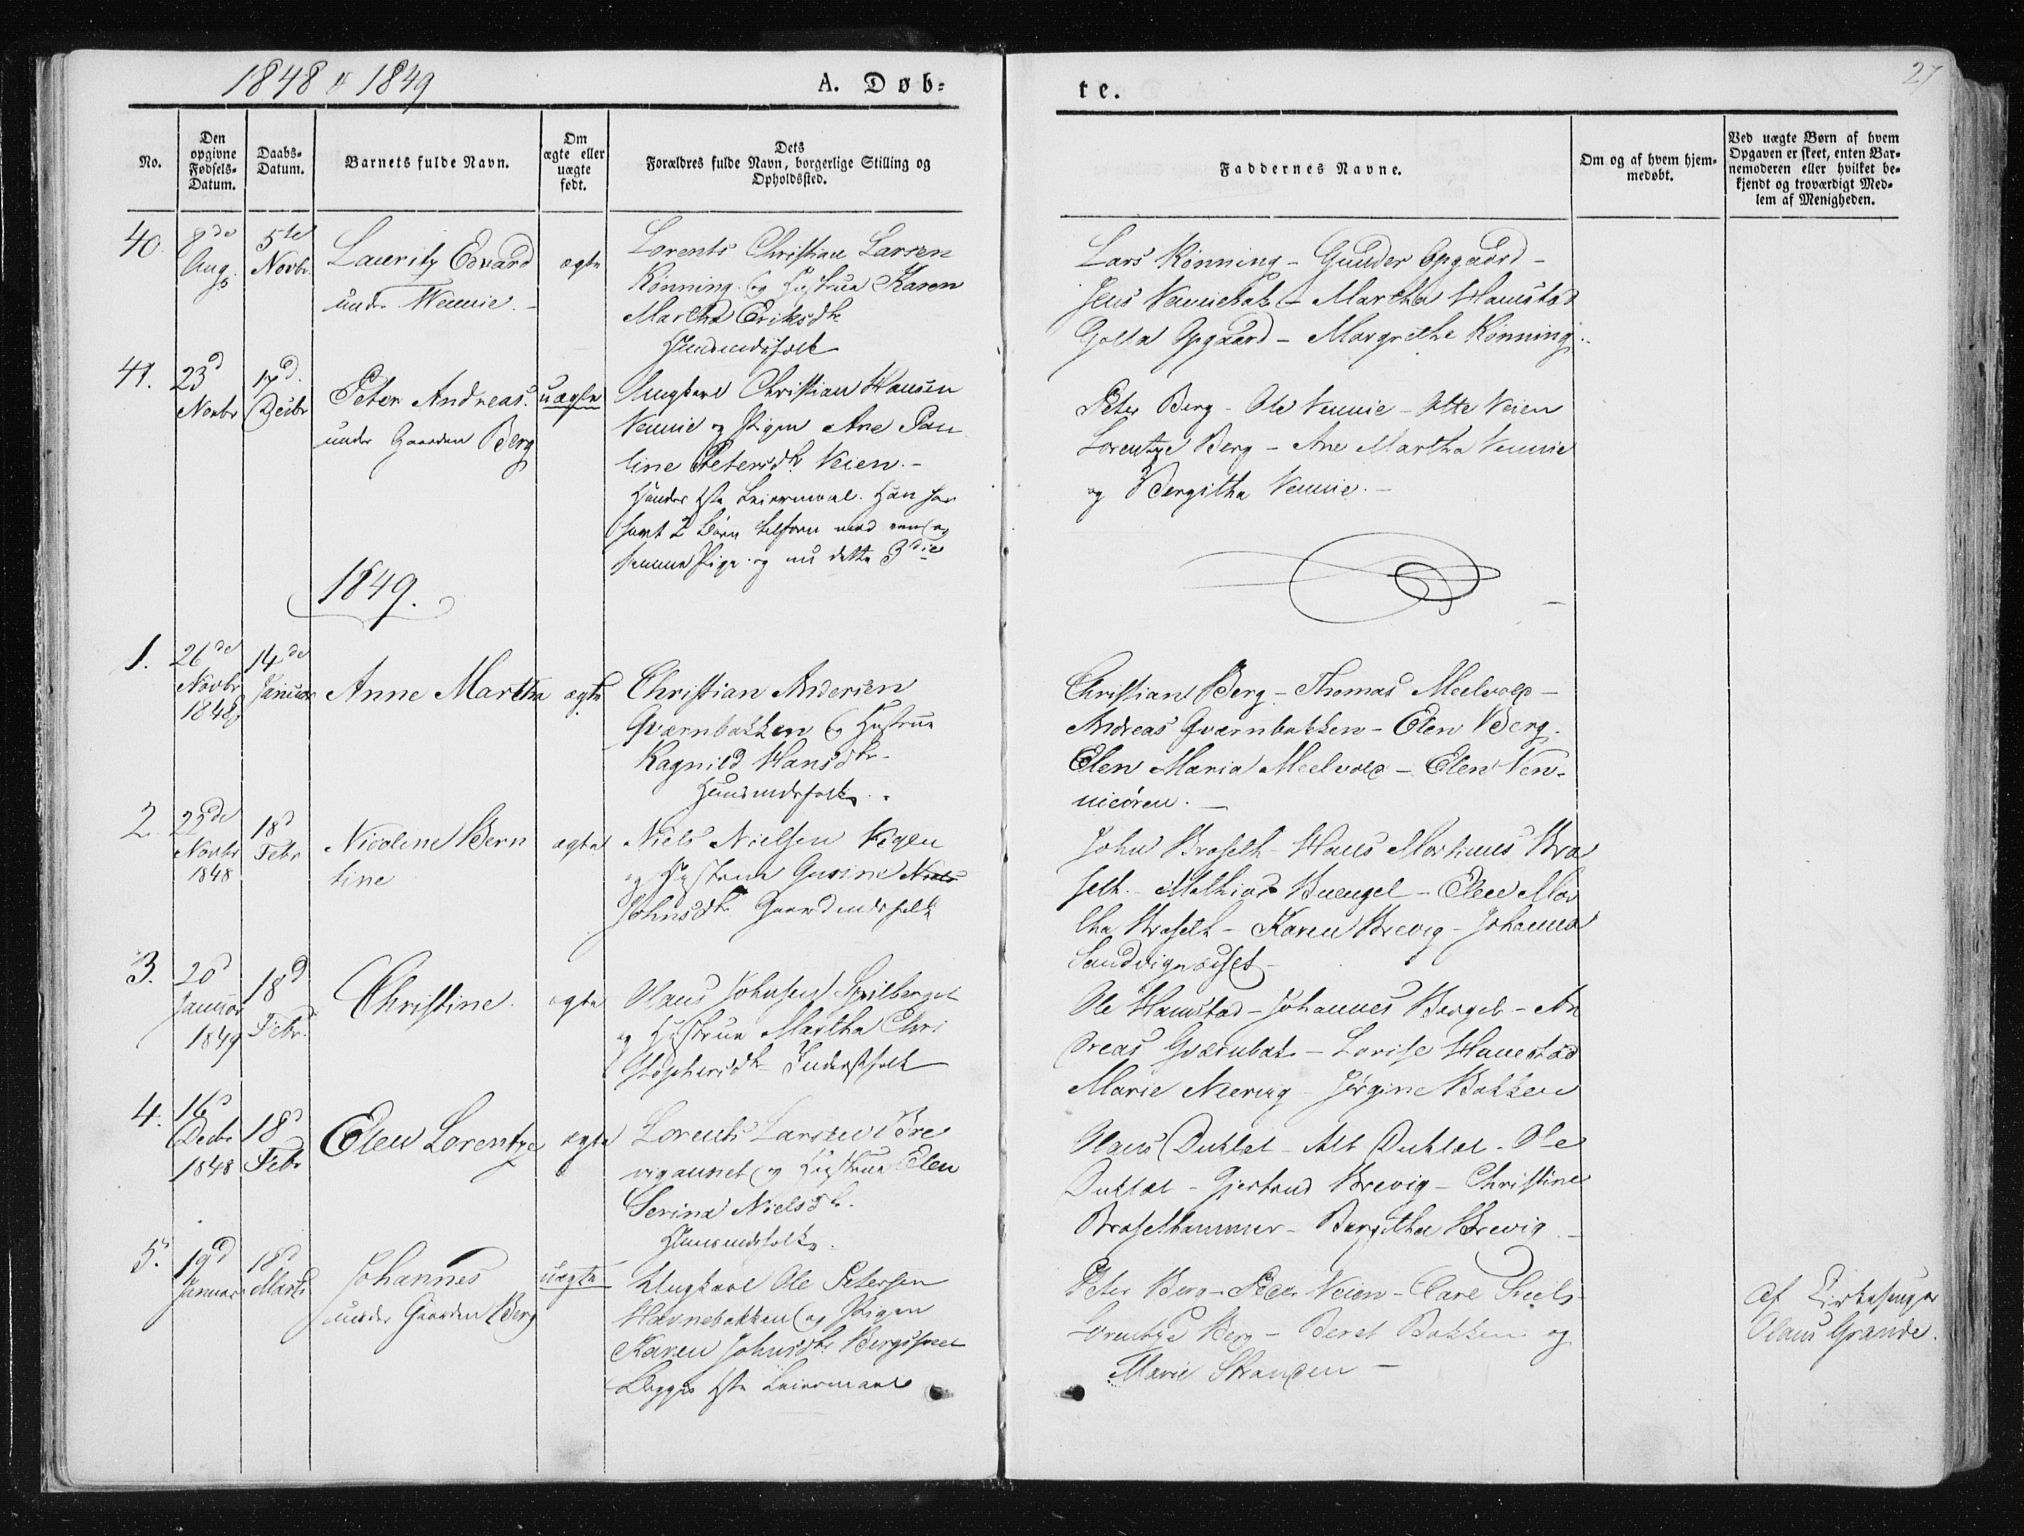 1848 & 1849
A. Døb-
te.
27
No.
Den
opgivne
Fødsels-
Datum.
Daabs-
Datum.
Barnets fulde Navn.
Om
ægte eller
uægte
født.
Dets
Forældres fulde Navn, borgerlige Stilling og
Opholdssted.
Faddernes Navne.
Om og af hvem hjem-
medøbt.
Ved uægte Børn af hvem
Opgaven er skeet, enten Bar-
nemoderen eller hvilket be-
kjendt og troværdigt Med-
lem af Menigheden.
40.
8de
Aug.
5te
Novbr
Lauritz Edvard
under Vennie.
ægte
Lorents Christian Larsen
Rønning og Hustrue Karen
Martha Eriksdtr
Huusmdsfolk
Lars Rønning - Gunder Opgaard -
Jens Venniebak - Martha Hamstad
Golla Opgaard - Margrethe Rønning.
41.
23d
Novbr
17d.
Decbr
Peter Andreas.
under Gaarden Berg
uægte
Ungkarl Christian Hansen
Vennie og Pigen Ane Pau
line Petersdtr Veien. -
Hendes 1ste Leiermaal. Han har
havt 2 Børn tilforn med een og
samme Pige og nu dette 3die
Peter Berg - Ole Vennie - Peter Veien
Lorentze Berg - Ane Martha Vennie
og Bergitha Vennie. -
1849.
1.
26de
Novbr
1848
14de
Januar
Anne Martha
ægte
Christian Andersen
Qværnbakken og Hustrue
Ragnild Hansdtr.
Huusmdsfolk.
Christian Berg - Thomas Meelvold -
Andreas Qværnbakken - Elen Berg.
Elen Maria Meelvold - Elen Ven-
nieøren. -
2.
22de
Novbr
1848
18d
Febr
Nicoline Bern
tine
ægte
Niels Nielsen Vegen
og Hustrue Gurine Niels
Johnsdtr Gaardmdsfolk
John Braseth - Hans Martinus Bra
seth. - Mathias Buengel - Elen Mar
tha Braseth - Karen Brevig - Johanna
Sandvignæset -
3.
20d
Januar
1849
18d
Febr.
Christine.
ægte
Hans Johnsen Spilberget
og Hustrue Martha Chri
stophersdtr Inderstfolk
Ole Hamstad - Johannes Berget - An
dreas Qværnbak - Lovise Hamstad
Marie Neering - Jørgine Bakken
4.
16d
Decbr
1848
18d
Febr
Elen Lorentze
ægte
Lorents Larsen Bre
vigaunet og Hustrue Elen
Serina Nielsdtr.
Huusmdsfolk.
Hans Duklæt - Alt Duklæt - Ole
Duklæt - Gjertrud Brevig - Christine
Brasethammer - Bergitha Brevig. -
5.
19d
Januar
18d
Marts
Johannes
under Gaarden Berg
uægte
Ungkarl Ole Petersen
Havnebakken og Pigen
Karen Johnsdtr Bergshven
Begges 1ste Leiermaal
Peter Berg - Peder Veien - Carl
Lorentze Berg - Beret Bakken og
Marie Stranden -
Af Kirkesanger
Olaus Grande.